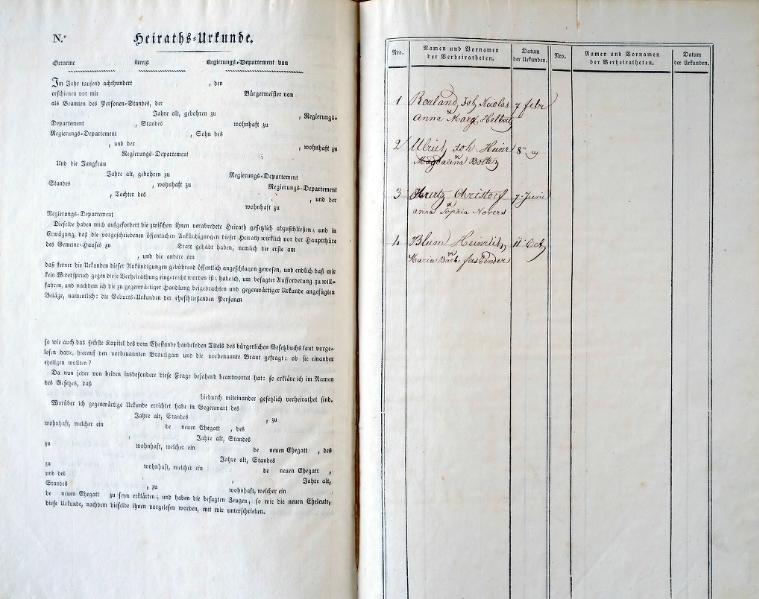 N.º Heiraths-Urkunde.
Gemeine Kreis Regierungs-Departement von
Im Jahr tausend achthundert , den
erschienen vor mir Bürgermeister von
als Beamten des Personen-Standes, der
Jahre alt, gebohren zu , Regierungs-
Departement , Standes wohnhaft zu
Regierungs-Departement , Sohn des
, und der , wohnhaft zu
Regierungs-Departement
Und die Jungfrau
Jahre alt, gebohren zu Regierungs-Departement
Standes , wohnhaft zu Regierungs-Departement
, Tochter des , und der
wohnhaft zu
Regierungs-Departement
Dieselbe haben mich aufgefordert die zwischen Ihnen verabredete Heirath gesetzlich abzuschließen, und in
Erwägung, daß die vorgeschriebenen öffentlichen Ankündigungen dieser Heirath wirklich vor der Hauptthüre
des Gemeine-Hauses zu Statt gehabt haben, nemlich die erste am
, und die andere am
daß ferner die Urkunden dieser Ankündigungen gebührend öffentlich angeschlagen gewesen, und endlich daß mir
kein Widerspruch gegen diese Verheirathung eingereicht worden ist; habe ich, um besagter Aufforderung zu will-
fahren, und nachdem ich die zu gegenwärtiger Handlung beigebrachten und gegenwärtiger Urkunde angefügten
Beläge, namentlich: die Geburts-Urkunden der eheschließenden Personen
so wie auch das sechste Kapitel des vom Ehestande handelnden Titels des bürgerlichen Gesetzbuchs laut vorge-
lesen habe, hierauf den vorbenannten Bräutigam und die vorbenannte Braut gefragt: ob sie einander
ehelichen wollen?
Da nun jeder von beiden insbesondere diese Frage bejahend beantwortet hat: so erkläre ich im Namen
des Gesetzes, daß
hierdurch miteinander gesetzlich verheirathet sind.
Worüber ich gegenwärtige Urkunde errichtet habe in Gegenwart des
Jahre alt, Standes , zu
wohnhaft, welcher ein de neuen Ehegatt , des
, Jahre alt, Standes
zu wohnhaft, welcher ein de neuen Ehegatt , des
, Jahre alt, Standes
zu wohnhaft, welcher ein de neuen Ehegatt ,
und des , Jahre alt,
Standes , zu wohnhaft, welcher ein
de neuen Ehegatt zu seyn erklärten; und haben die besagten Zeugen, so wie die neuen Eheleute,
diese Urkunde, nachdem dieselbe ihnen vorgelesen worden, mit mir unterschrieben.
Nro. Namen und Vornamen der Verheiratheten. Datum der Urkunden. Nro. Namen und Vornamen der Verheiratheten. Datum der Urkunden.
1 Joh Nicolas 7 febr
Anna Marg.
2 Ulrich Joh Heinr 8
Magdalena
3 Christof 7 Juni
anna Sophia
4 Blum Heinrich 11 Octb
Maria Barb.